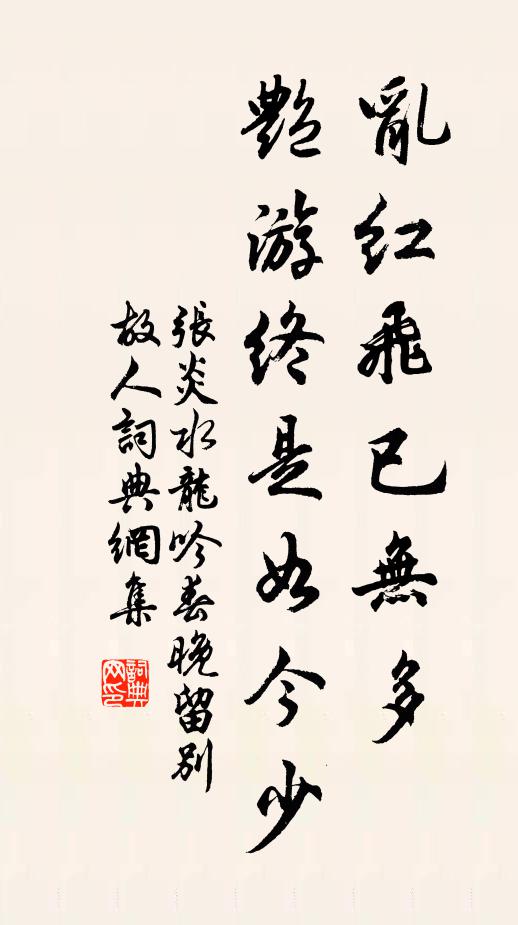 亂紅飛已無多
艶游終是如今少
張炎水龍吟春晚留別
故人詞典網集
詞典网印